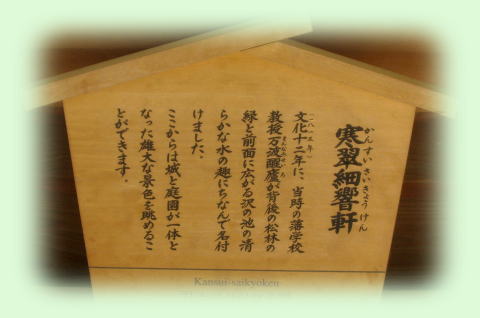 寒翠細響軒
かんすいさいきょうけん
文化十二年に、当時の藩学校
(一八一五年)
教授万波醒廬が背後の松林の
まんなみせいろ
緑と前面に広がる沢の池の清
らかな水の趣にちなんで名付
けました。
ここからは城と庭園が一体と
なった雄大な景色を眺めるこ
とができます。
Kansui-saikyoken